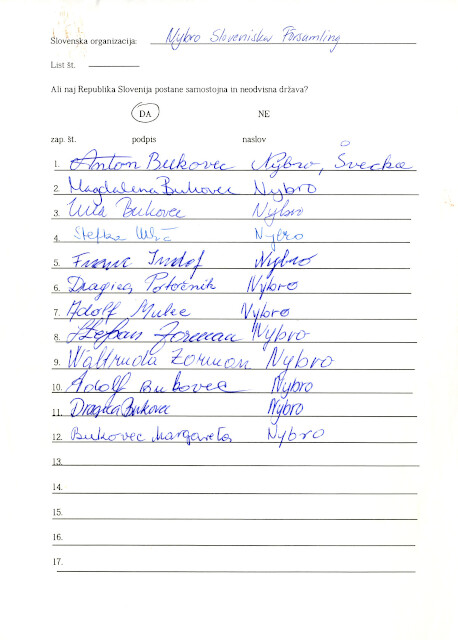 Slovenska organizacija: Nybro Sloveniska Församling
List št.
Ali naj Republika Slovenija postane samostojna in neodvisna država?
DA NE
zap. št. podpis naslov
1. Anton Bukovec Nybro, Švecka
2. Magdalena Bukovec Nybro
3. Bukovec Nybro
4. Štefka Nybro
5. Franc Nybro
6. Dragica Potočnik Nybro
7. Adolf Nybro
8. Štefan Zorman Nybro
9. Waltruda Zorman Nybro
10. Adolf Bukovec Nybro
11. Dragica Bukovec Nybro
12. Bukovec Margareta Nybro
13.
14.
15.
16.
17.